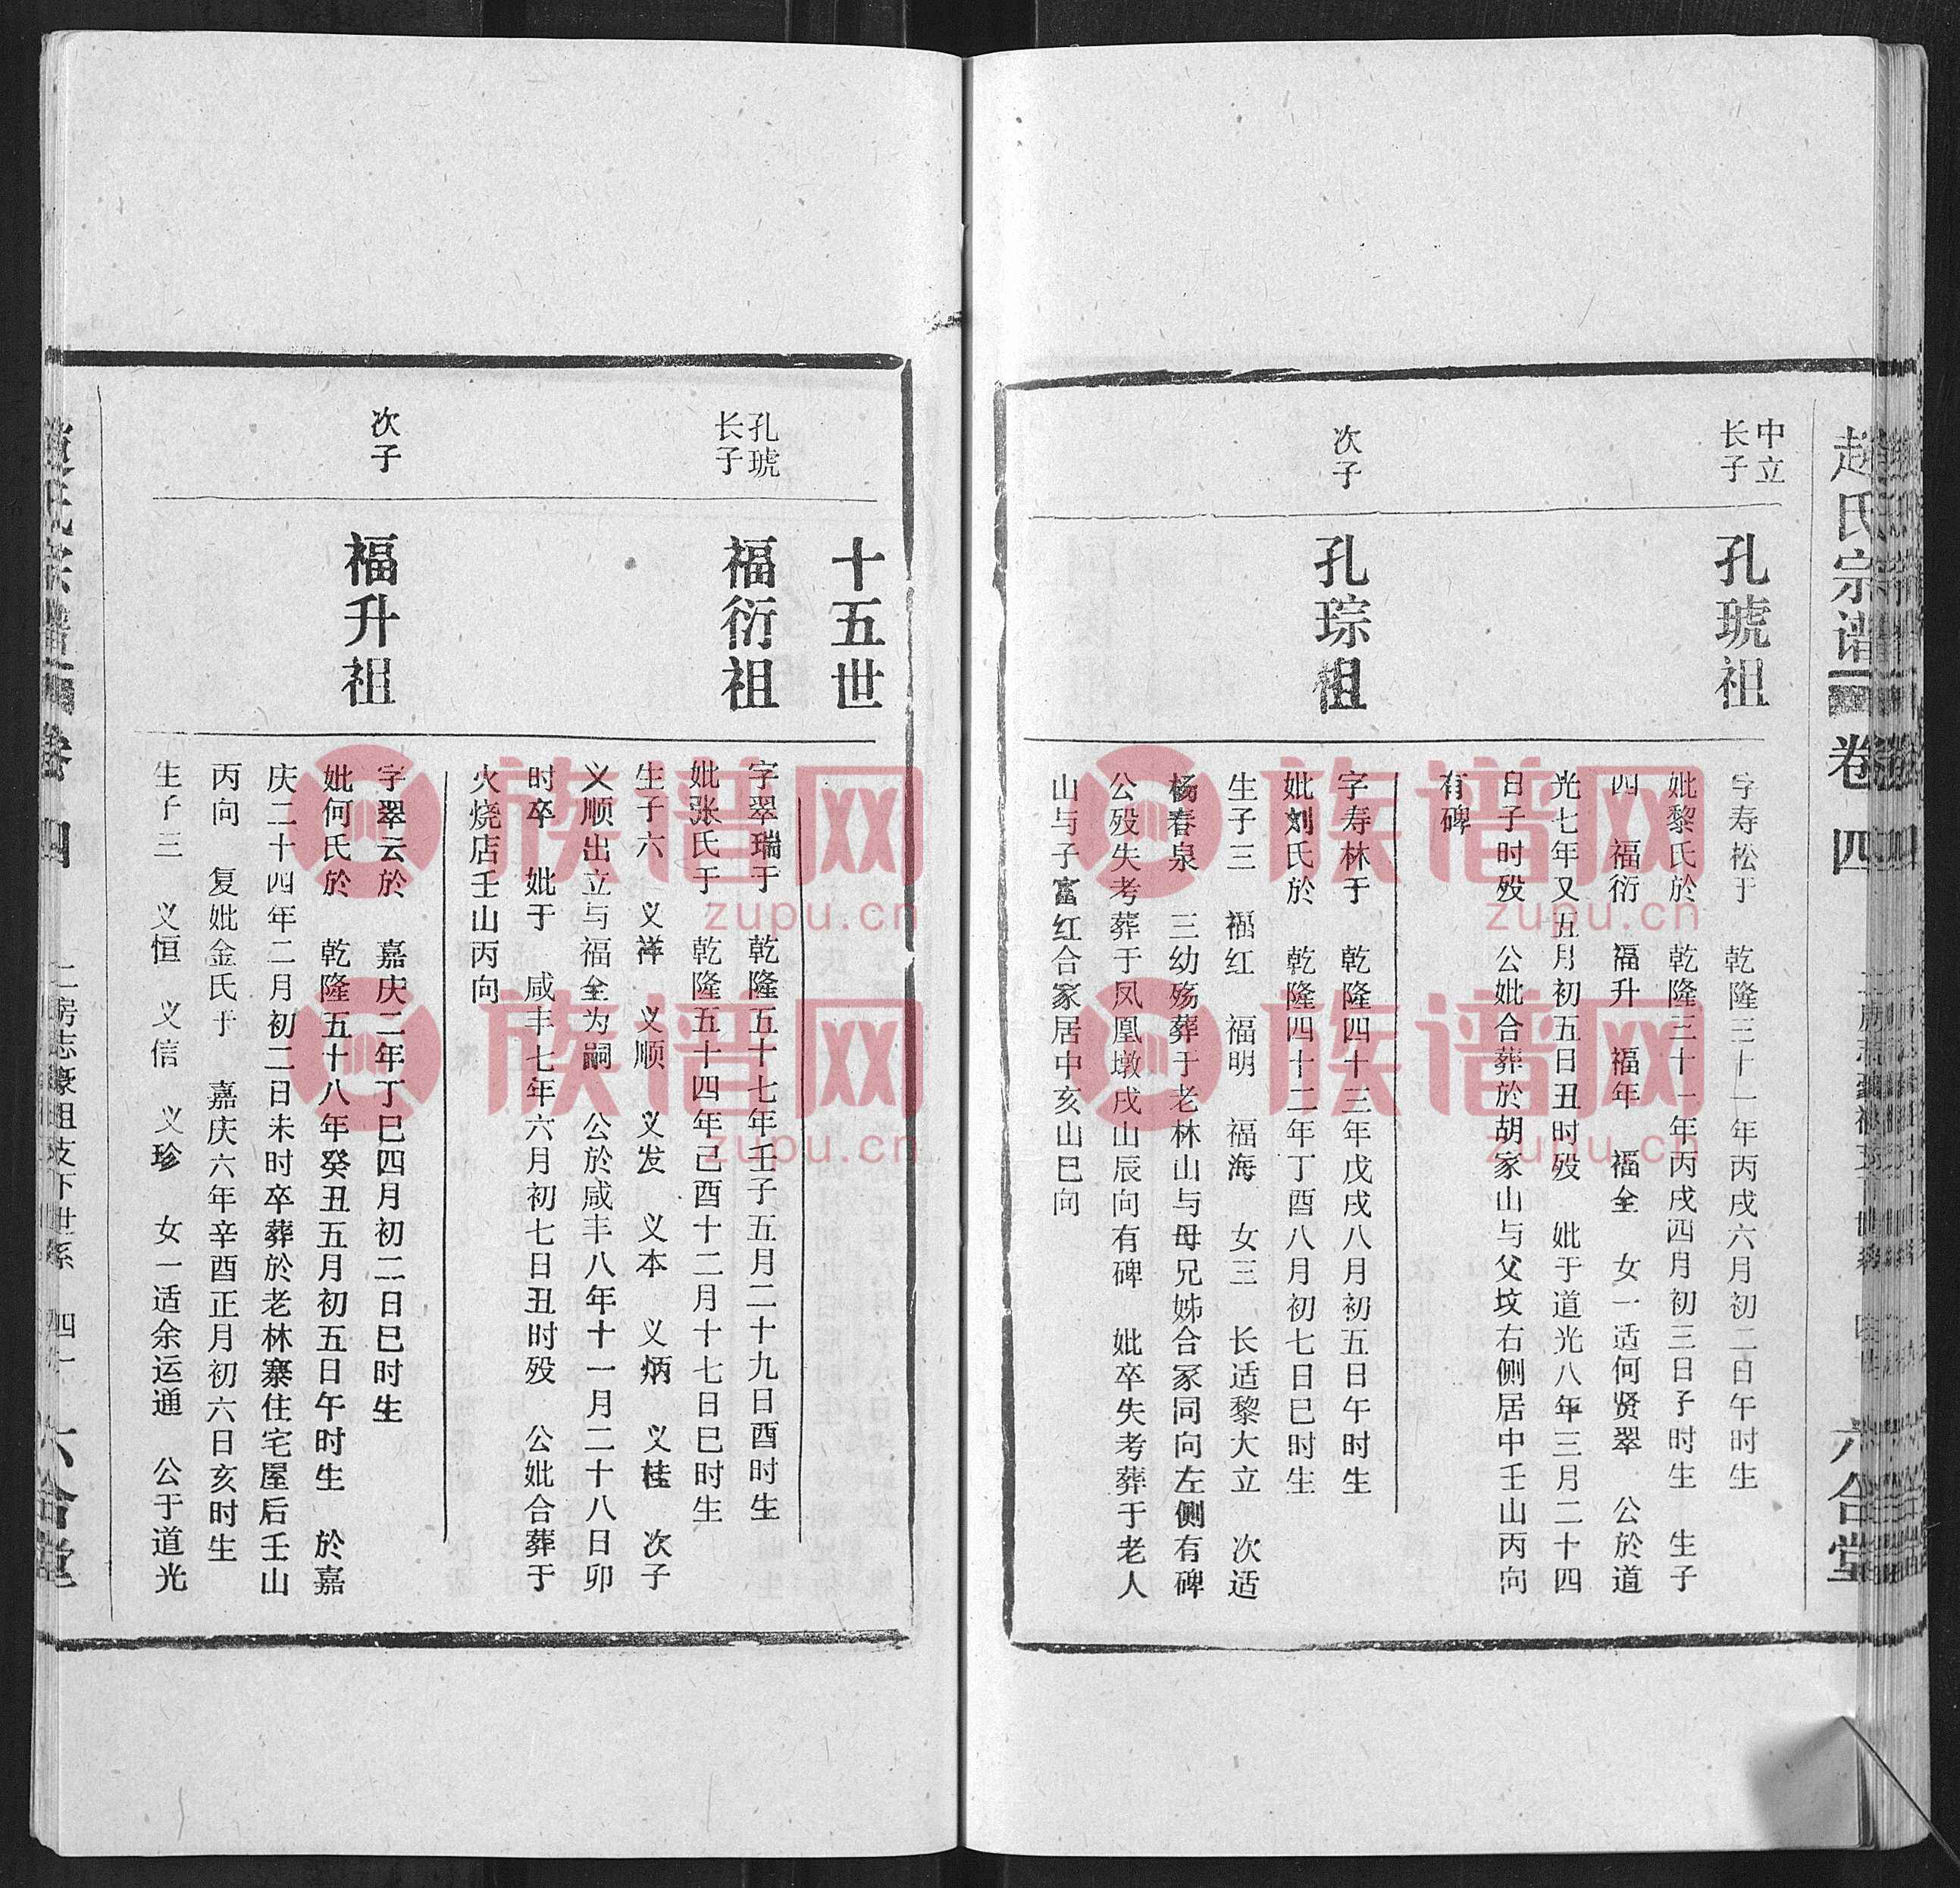 赵氏宗谱
卷四
六合堂
中立
长子
孔琥祖
字寿松于 乾隆三十一年丙戌六月初二日午时生
妣黎氏於 乾隆三十一年丙戌四月初三日子时生 生子
四 福衍 福升 福年 福全 女一适何贤翠 公於道
光七年又五月初五日丑时殁 妣于道光八年三月二十四
日子时殁 公妣合葬於胡家山与父坟右侧居中壬山丙向
有碑
次子
孔琮祖
字寿林于 乾隆四十三年戊戌八月初五日午时生
妣刘氏於 乾隆四十二年丁酉八月初七日巳时生
生子三 福红 福明 福海 女三 长适黎大立 次适
杨春泉 三幼殇葬于老林山与母兄姊合冢同向左侧有碑
公殁失考葬于凤凰墩戌山辰向有碑 妣卒失考葬于老人
山与子富红合冢居中亥山巳向
十五世
孔琥
长子
福衍祖
字翠瑞于 乾隆五十七年壬子五月二十九日酉时生
妣张氏于 乾隆五十四年己酉十二月十七日巳时生
生子六 义祥 义顺 义发 义本 义炳 义桂 次子
义顺出立与福全为嗣 公於咸丰八年十一月二十八日卯
时卒 妣于 咸丰七年六月初七日丑时殁 公妣合葬于
火烧店壬山丙向
次子
福升祖
字翠云於 嘉庆二年丁巳四月初二日巳时生
妣何氏於 乾隆五十八年癸丑五月初五日午时生 於嘉
庆二十四年二月初二日未时卒葬於老林寨住宅屋后壬山
丙向 复妣金氏于 嘉庆六年辛酉正月初六日亥时生
生子三 义恒 义信 义珍 女一适余运通 公于道光
房志豪祖支下世系
六合堂
族谱网
zupu.cn
族谱网
zupu.cn
族谱网
zupu.cn
族谱网
zupu.cn